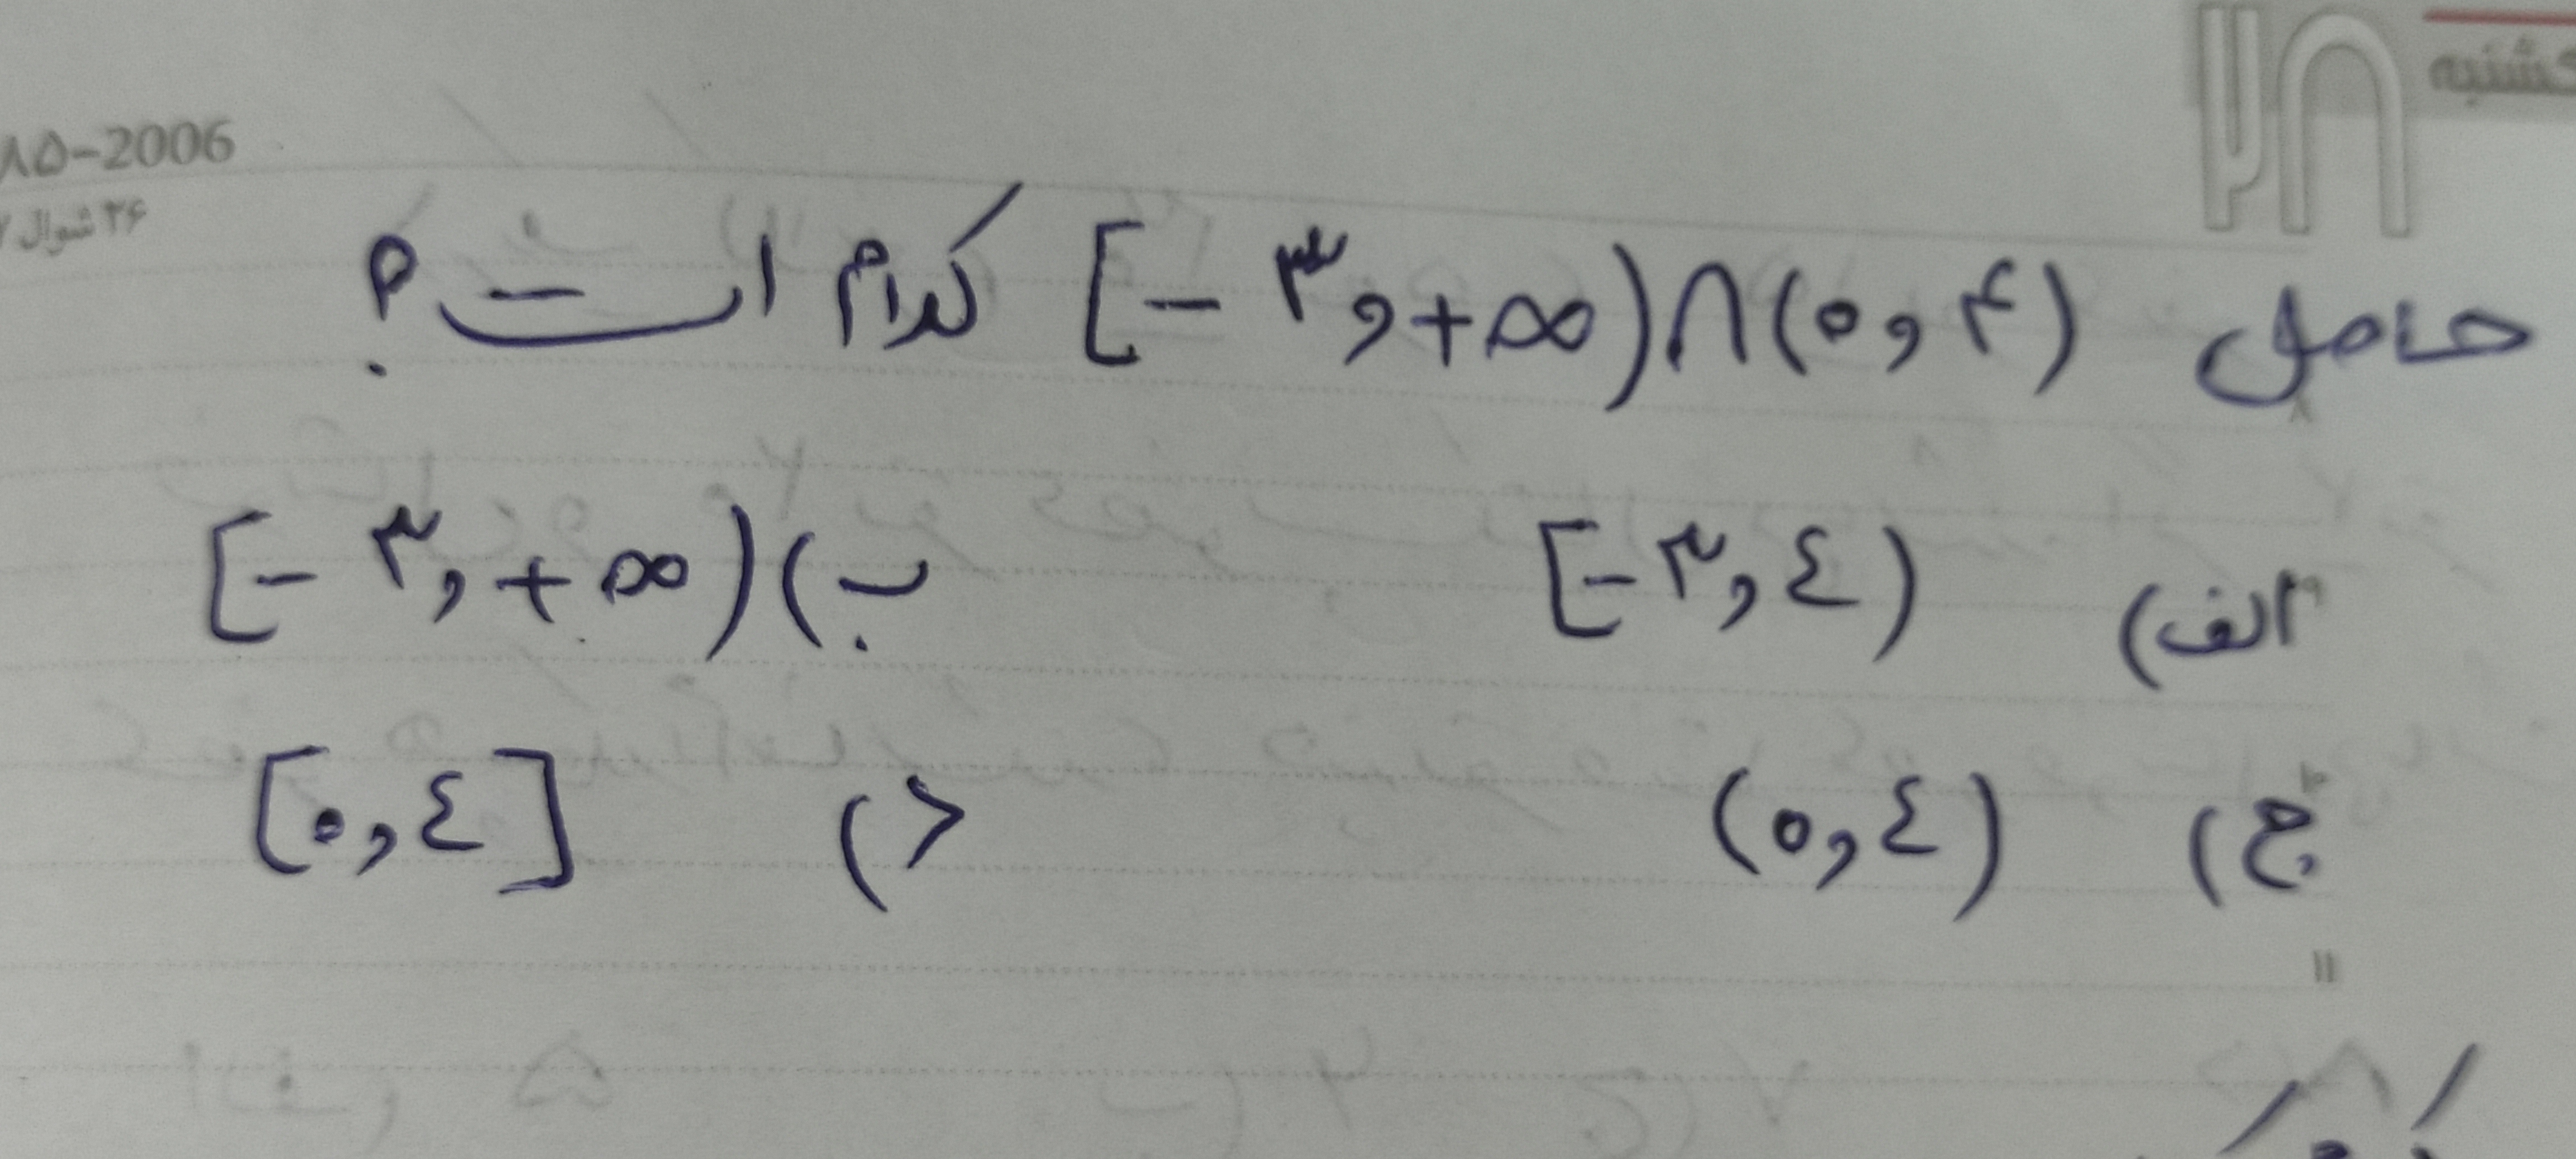 کشنبه
۲۸
۸۵-2006
۲۶ شوال
حاصل [-۳,+∞)∩(۰,۴) کدام است؟
الف) [-۳,٤) ب) [-۳,+∞)
ج) (۰,٤) د) [۰,٤]
۱۱